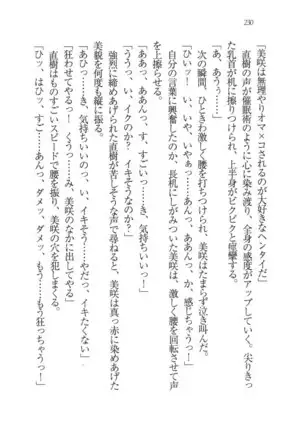 230
「美咲は無理やりオマ×コされるのが大好きなヘンタイだ」
直樹の声が催眠術のように心に染み渡り、全身の感度がアップしていく。尖りきっ
た乳首が机に擦りつけられ、上半身がビクビクと痙攣する。
次の瞬間、ひときわ激しく腰を打ちつけられ、美咲はたまらず泣き叫んだ。
「ひいぃ！　いやっ、いやぞ……あああんっ、か、感じちゃうっ！」
自分の言葉に興奮したのか、長机にしがみついた美咲は、激しく腰を回転させて声
を上擦らせる。
「ああっ、ああんっ、す、すご……き、気持ちいいっ！」
「イ、イクのか？　い、イキそうか？」
強烈に締めあげられた直樹が苦しそうな声で尋ねると、美咲は真っ赤に染めあげた
美貌を何度も縦に振る。
「あひっ……す、すごい、気持ちいい……やだっ、イキたくない」
「狂わせてやる、くうっ……み、美咲、イキそうだっ！」
美咲のなかに出してやる」
直樹はものすごいスピードで腰を振り、美咲の穴を犯しまくる。
「ひっ、はひっ、すご……あんっ、ダメッ、ダメッ　もう……もう狂っちゃうっ！」